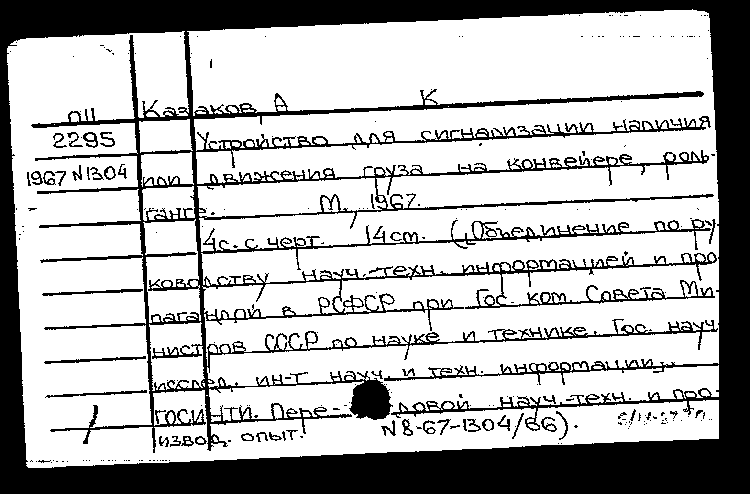 ПII Казаков, А К
2295 Устройство для сигнализации наличия
1967 N1304 или движения груза на конвейере, роль-
ганге. М., 1967.
4с. с черт. 14 cm. („Объединение по ру
ководству науч.-техн. информацией и про
пагандой в РСФСР при Гос. ком. Совета Ми-
нистров СССР по науке и технике. Гос. науч.
исслед. ин-т науч. и техн. информации„.
ГОСИНТИ. Пере- довой науч.-техн. и про-
извод. опыт. N8-67-1304/66).